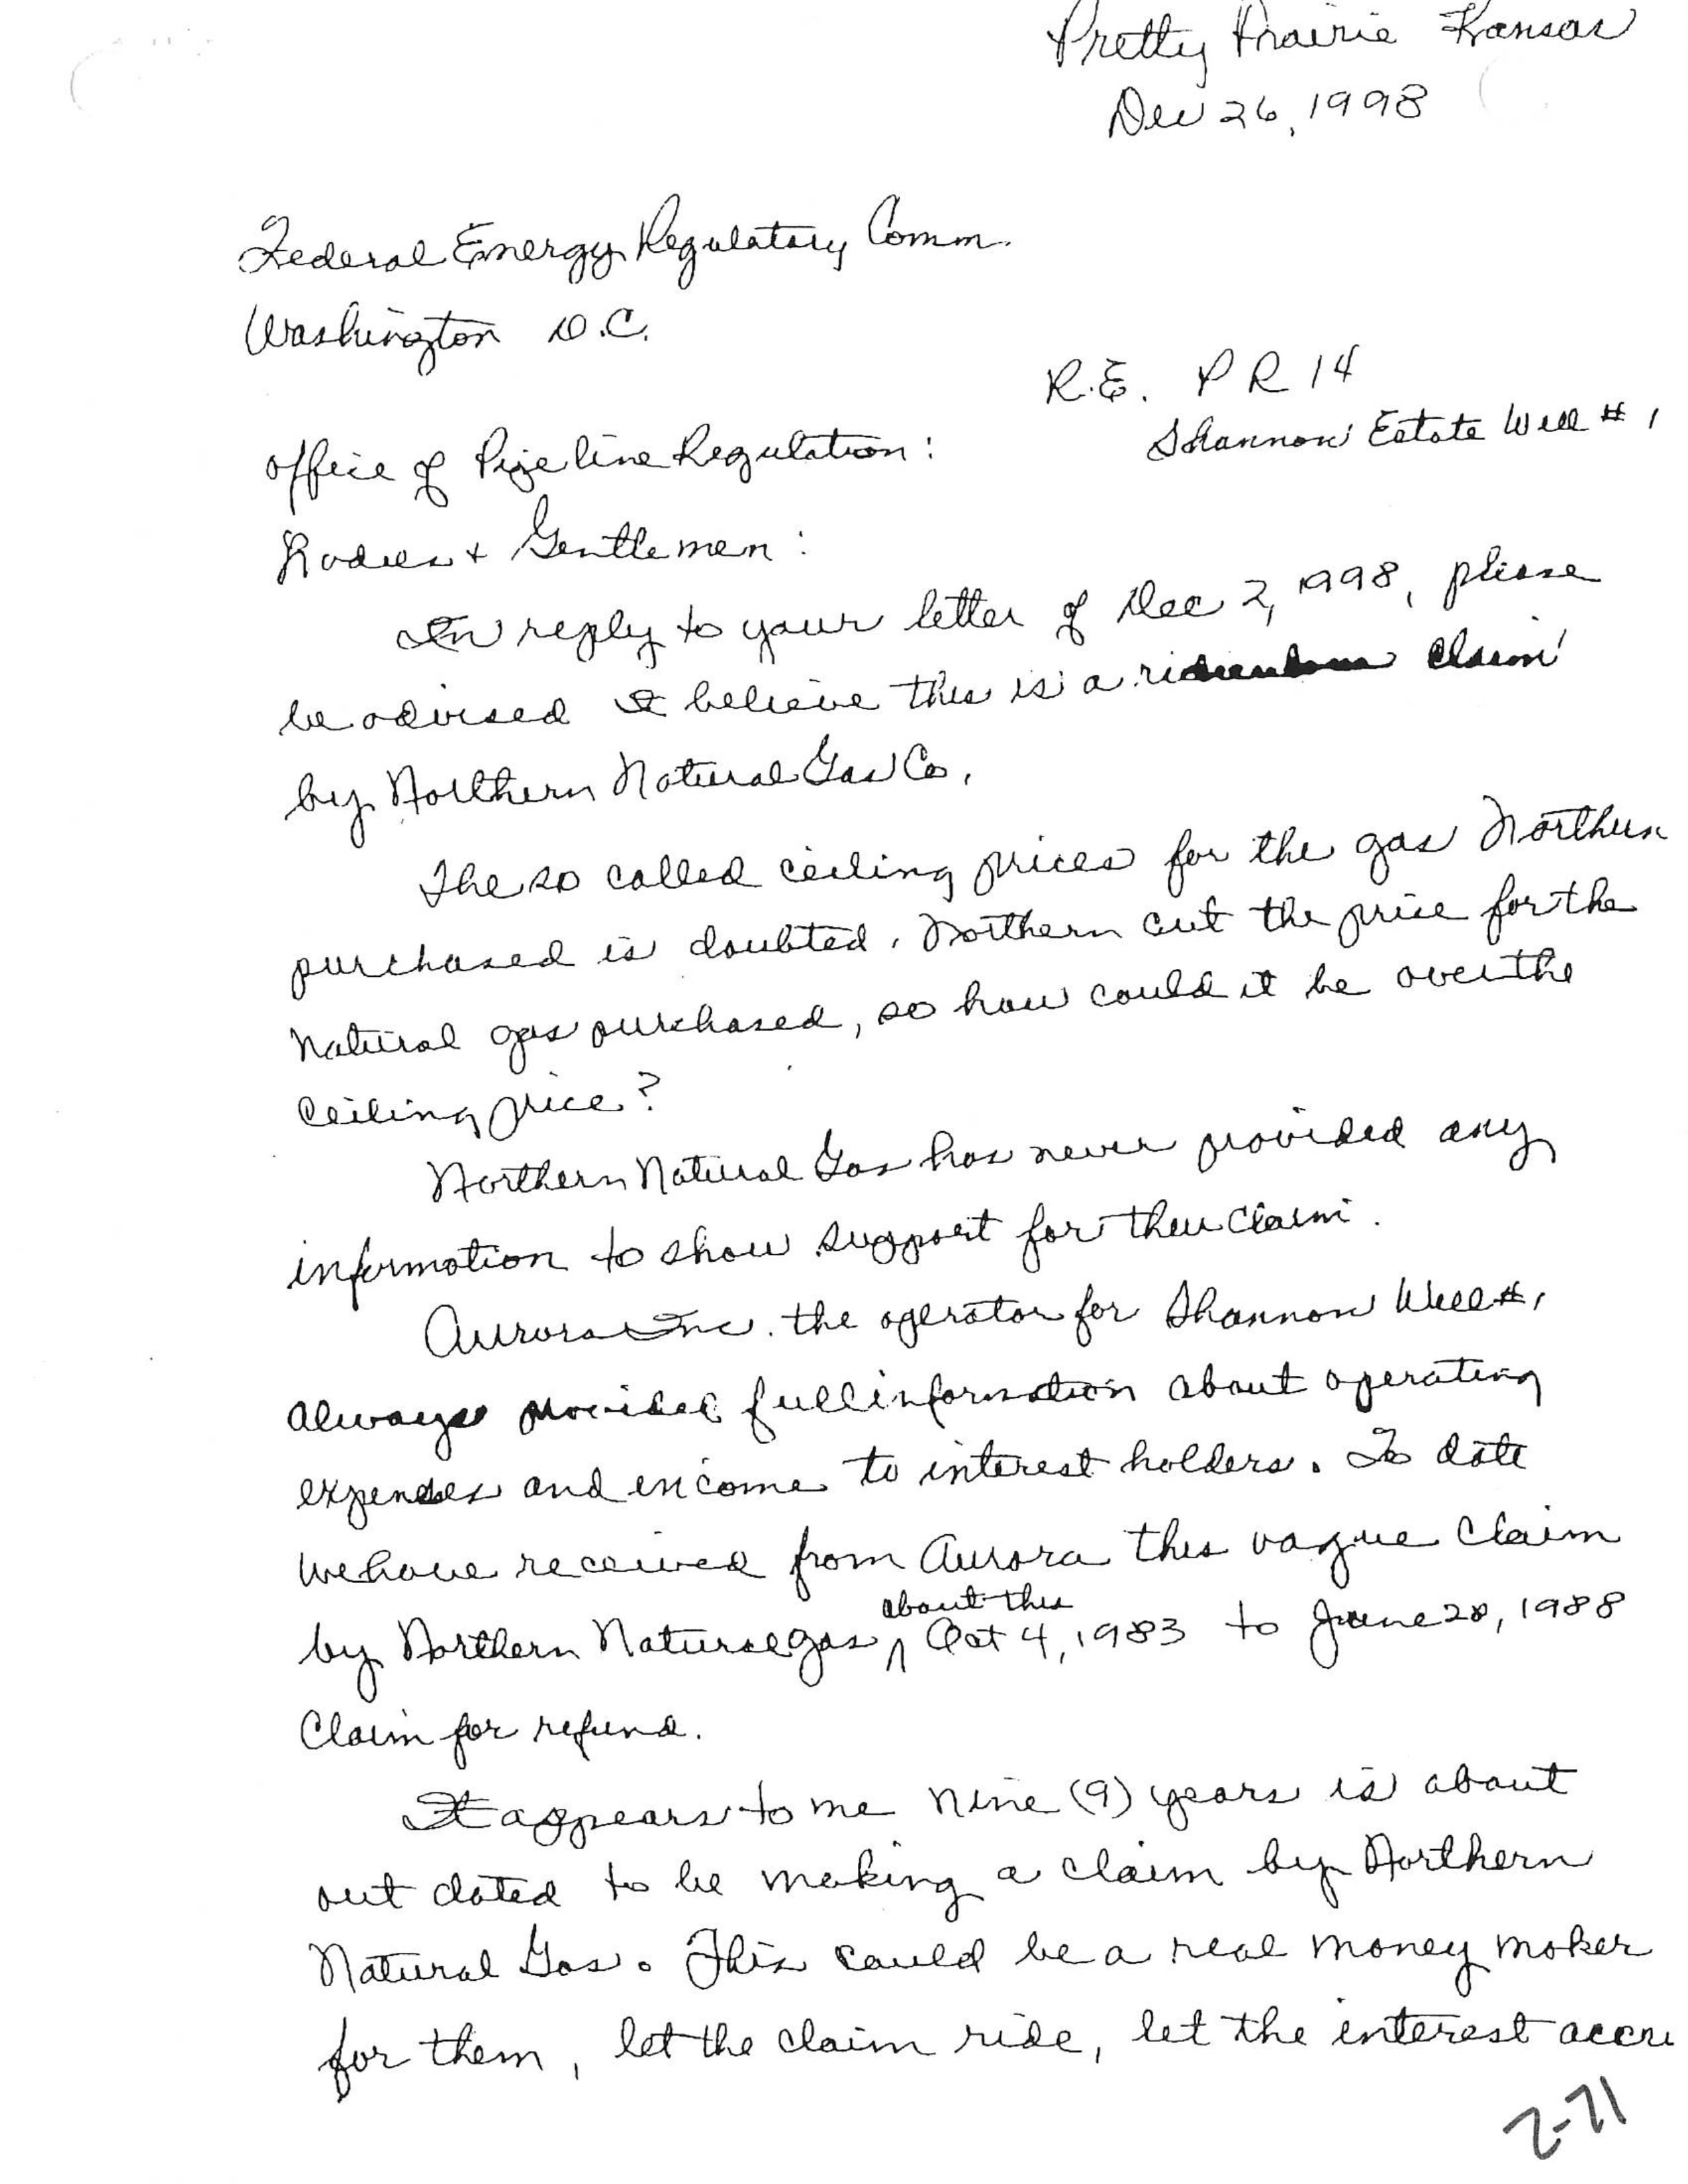 Pretty Prairie Kansas
Dec 26, 1998
Federal Energy Regulatory Comm.
Washington D.C.
R.E. PR 14
Shannon Estate Well # 1
Office of Pipe line Regulation:
Ladies + Gentlemen:
In reply to your letter of Dec 2, 1998, please
be advised I believe this is a claim
by Northern Natural Gas Co.
The so called ceiling prices for the gas Northern
purchased is doubted. Northern cut the price for the
natural gas purchased, so how could it be over the
ceiling price?
Northern Natural Gas has never provided any
information to show support for their claim.
Aurora Inc. the operator for Shannon Well #1
always provided full information about operating
expenses and income to interest holders. To date
we have received from Aurora this vague claim
by Northern Natural gas, about this Oct 4, 1983 to June 28, 1988
Claim for refund.
It appears to me nine (9) years is about
out dated to be making a claim by Northern
Natural Gas. This could be a real money maker
for them, let the claim ride, let the interest accru
2-71